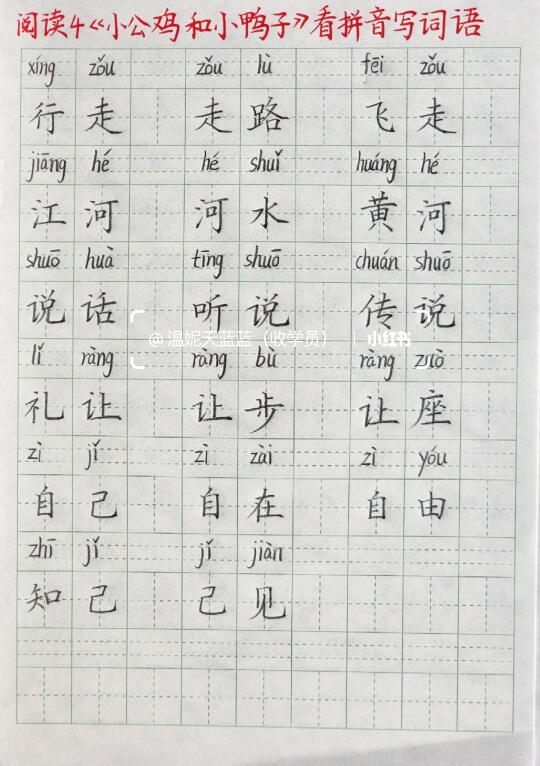 阅读4《小公鸡和小鸭子》看拼音写词语
xíng zǒu zǒu lù fēi zǒu
行走 走路 飞走
jiāng hé hé shuǐ huáng hé
江河 河水 黄河
shuō huà tīng shuō chuán shuō
说话 听说 传说
@温妮天蓝蓝（收学员） 小红书
lǐ ràng ràng bù ràng zuò
礼让 让步 让座
zì jǐ zì zài zì yóu
自己 自在 自由
zhī jǐ jǐ jiàn
知己 己见